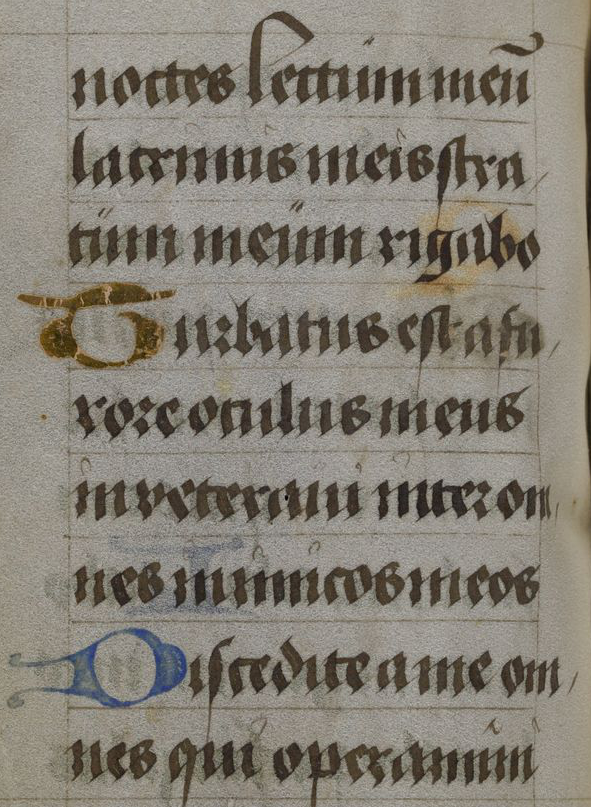 noctes lectum meū
lacrimis meis stra
tum meum rigabo
Turbatus est a fu,
rore oculus meus
inveteravi inter om,
nes inimicos meos
Discedite a me om,
nes qui operamini